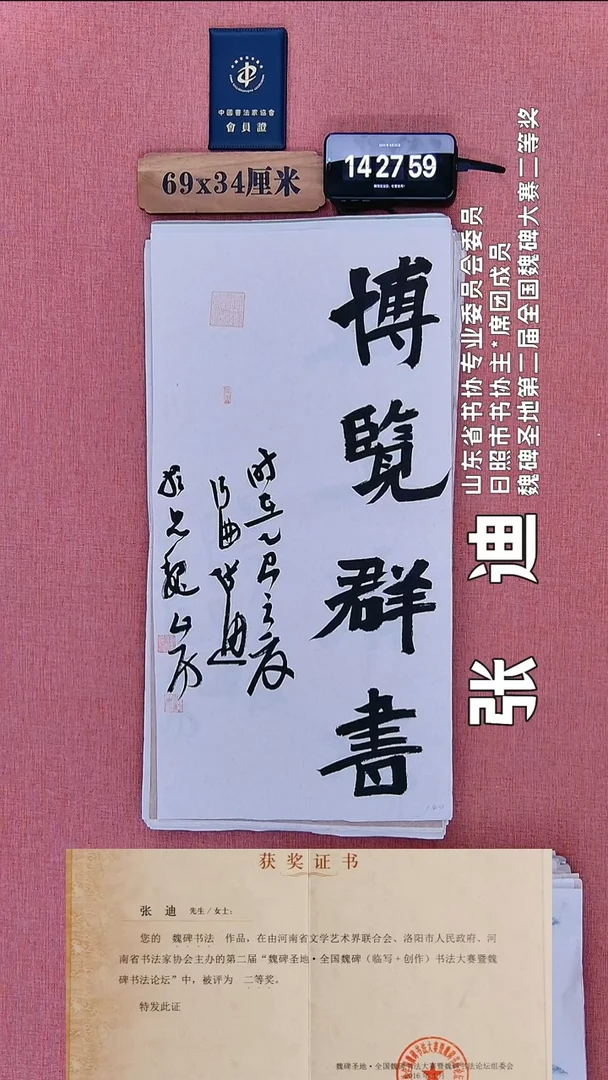 中國書法家協會
會員證
69x34厘米
14 27 59
博覽群書
山东省书协专业委员会委员
日照市书协主*席团成员
魏碑圣地第二届全国魏碑大赛二等奖
张迪
获奖证书
张 迪 先生/女士:
您的 魏碑书法 作品，在由河南省文学艺术界联合会、洛阳市人民政府、河
南省书法家协会主办的第二届“魏碑圣地·全国魏碑（临写+创作）书法大赛暨魏
碑书法论坛”中，被评为 二等奖。
特发此证
魏碑圣地·全国魏碑书法大赛暨魏碑书法论坛组委会